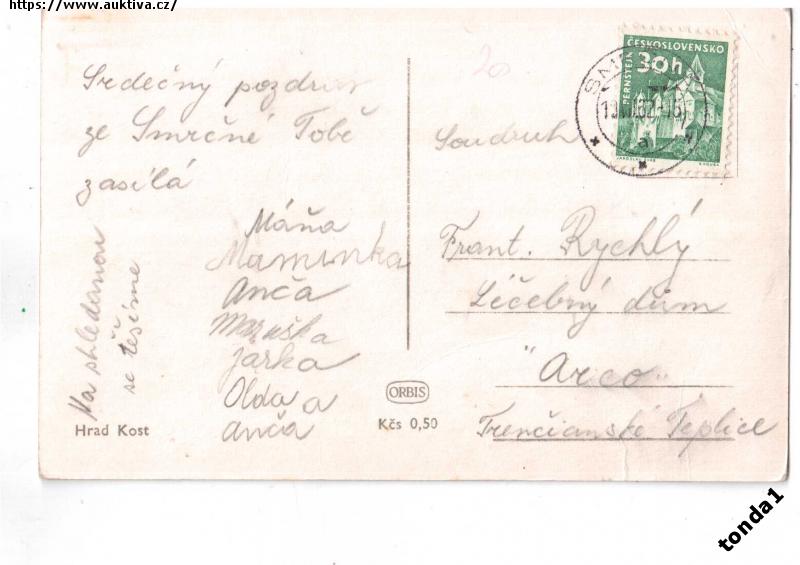 https://www.auktiva.cz/
Srdečný pozdrav
ze Smrčné Tobě
zasílá
Máňa
Maminka
Anča
Maruška
Jarka
Olda a
Anča
Na shledanou
se těšíme
Hrad Kost
ORBIS
Kčs 0,50
20
ČESKOSLOVENSKO
30h
PERNŠTEJN
a
Soudruh
Frant. Rychlý
Léčebný dům
"Arco"
Trenčianské Teplice
tonda1